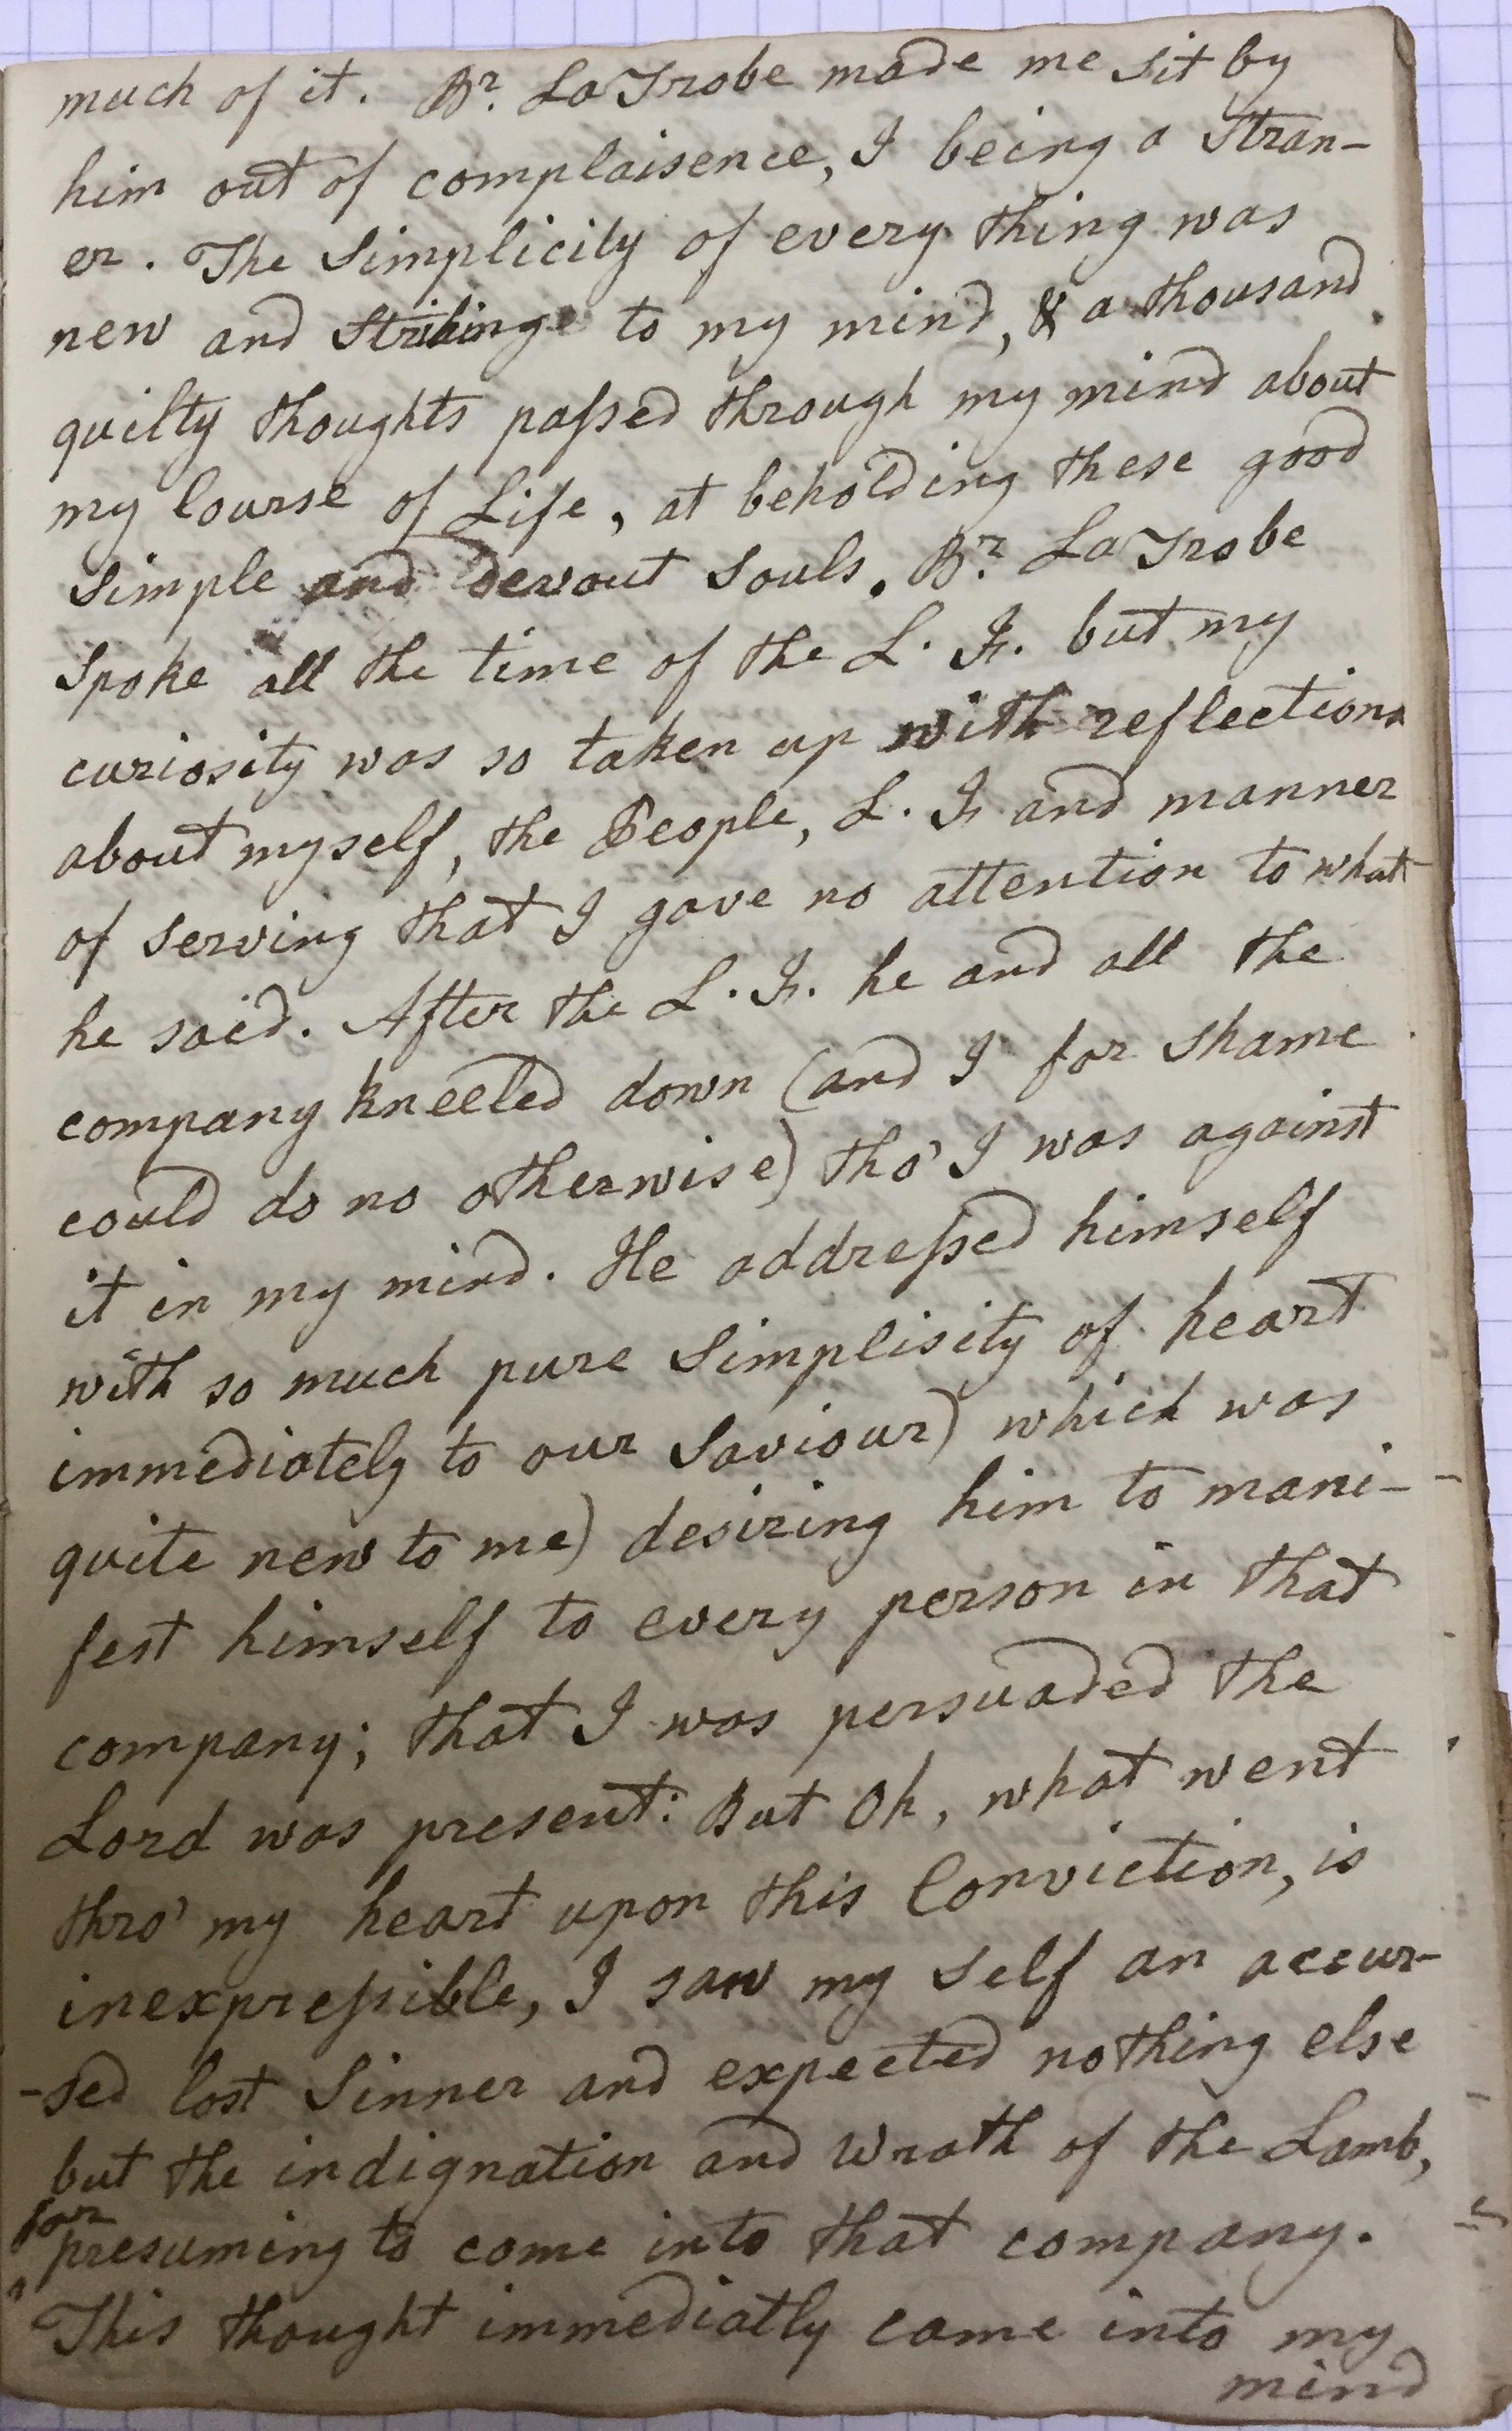 much of it. Br. LaTrobe made me sit by
him out of complaisence, I being a Stran-
er. The Simplicity of every thing was
new and Striking to my mind, & a thousand
guilty thoughts passed through my mind about
my Course of Life, at beholding these good
Simple and devout Souls. Br. LaTrobe
Spoke all the time of the L. F. but my
curiosity was so taken up with reflections
about myself, the People, L. F. and manner
of serving that I gave no attention to what
he said. After the L. F. he and all the
company kneeled down (and I for shame
could do no otherwise) tho' I was against
it in my mind. He addressed himself
with so much pure Simplisity of heart
immediately to our Saviour) which was
quite new to me) desiring him to mani-
fest himself to every person in that
company; that I was persuaded the
Lord was present: But Oh, what went
thro' my heart upon this Conviction, is
inexpressible, I saw my self an accur-
-sed lost Sinner and expected nothing else
but the indignation and Wrath of the Lamb,
for
presuming to come into that company.
This thought immediatly came into my
mind